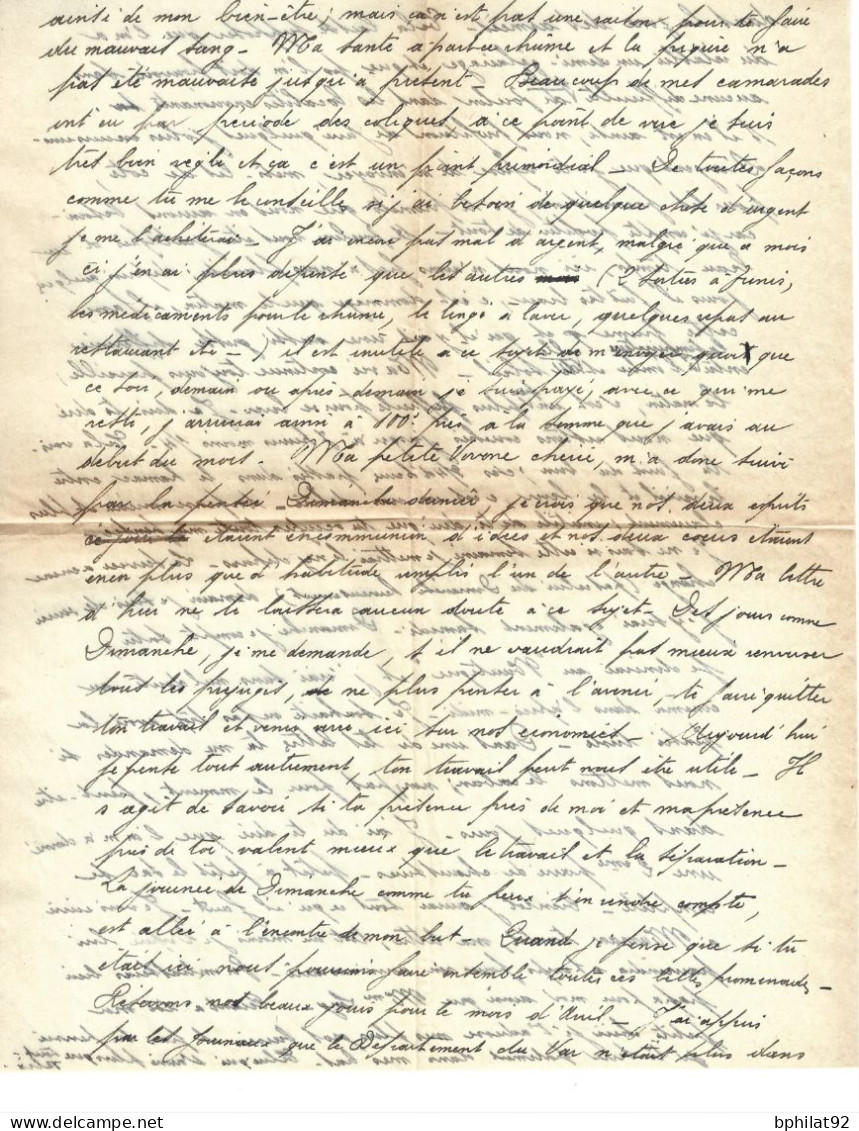 ainsi de mon bien-être; mais ça n'est pas une raison pour te faire
du mauvais sang - Ma santé à part ce rhume et la piqûre n'a
pas été mauvaise jusqu'à présent - Beaucoup de mes camarades
ont eu par période des coliques, à ce point de vue je suis
très bien réglé et ça c'est un point primordial - De toutes façons
comme tu me le conseille si j'ai besoin de quelque chose d'urgent
je me l'achèterai - J'ai encore pas mal d'argent, malgré que ce mois
ci j'en ai plus dépensé que les autres (2 sorties à Tunis,
les médicaments pour le rhume, le linge à laver, quelques repas au
restaurant etc - ) il est inutile à ce sujet de m'envoyer quoi que
ce soir, demain ou après-demain je suis payé, avec ce qui me
reste, j'arriverai ainsi à 100f près à la somme que j'avais au
début du mois - Ma petite Vovone chérie, m'a donc suivi
par la pensée - Dimanche dernier, je crois que nos deux esprits
étaient en communion d'idées et nos deux coeurs étaient
encor plus que d'habitude emplis l'un de l'autre - Ma lettre
d'hier ne te laissera aucun doute à ce sujet - Des jours comme
Dimanche, je me demande, s'il ne vaudrait pas mieux renverser
tous les préjugés, de ne plus penser à l'avenir, te faire quitter
ton travail et venir vivre ici sur nos économies - Aujourd'hui
je pense tout autrement, ton travail peut nous être utile - Il
s'agit de savoir si ta présence près de moi et ma présence
près de toi valent mieux que le travail et la séparation -
La journée de Dimanche comme tu peux t'en rendre compte,
est allée à l'encontre de mon but - Quand je pense que si tu
était ici nous pourrions faire ensemble toutes ces belles promenades -
Réservons nos beaux jours pour le mois d'Avril - J'ai appris
par les journaux que le Département du Var n'était plus dans
bphilat92